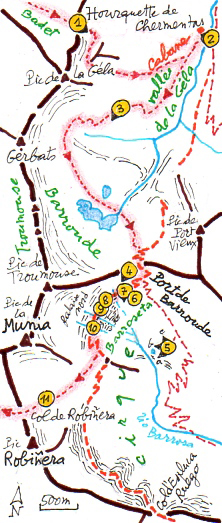 Badet
1
Hourquette de
Chermentas
2
Cabane
Pic de
la Géla
vallée
de la Géla
3
Gerbats
Troumouse
Barroude
Pic de
Port
Vieux
Pic de
Troumouse
4
Port de
Barroude
Pic de
la
Munia
7
6
8
9
10
Barroseta
5
cirque
11
Col de Robiñera
Rio
Barrosa
Pic
Robiñera
N
500m